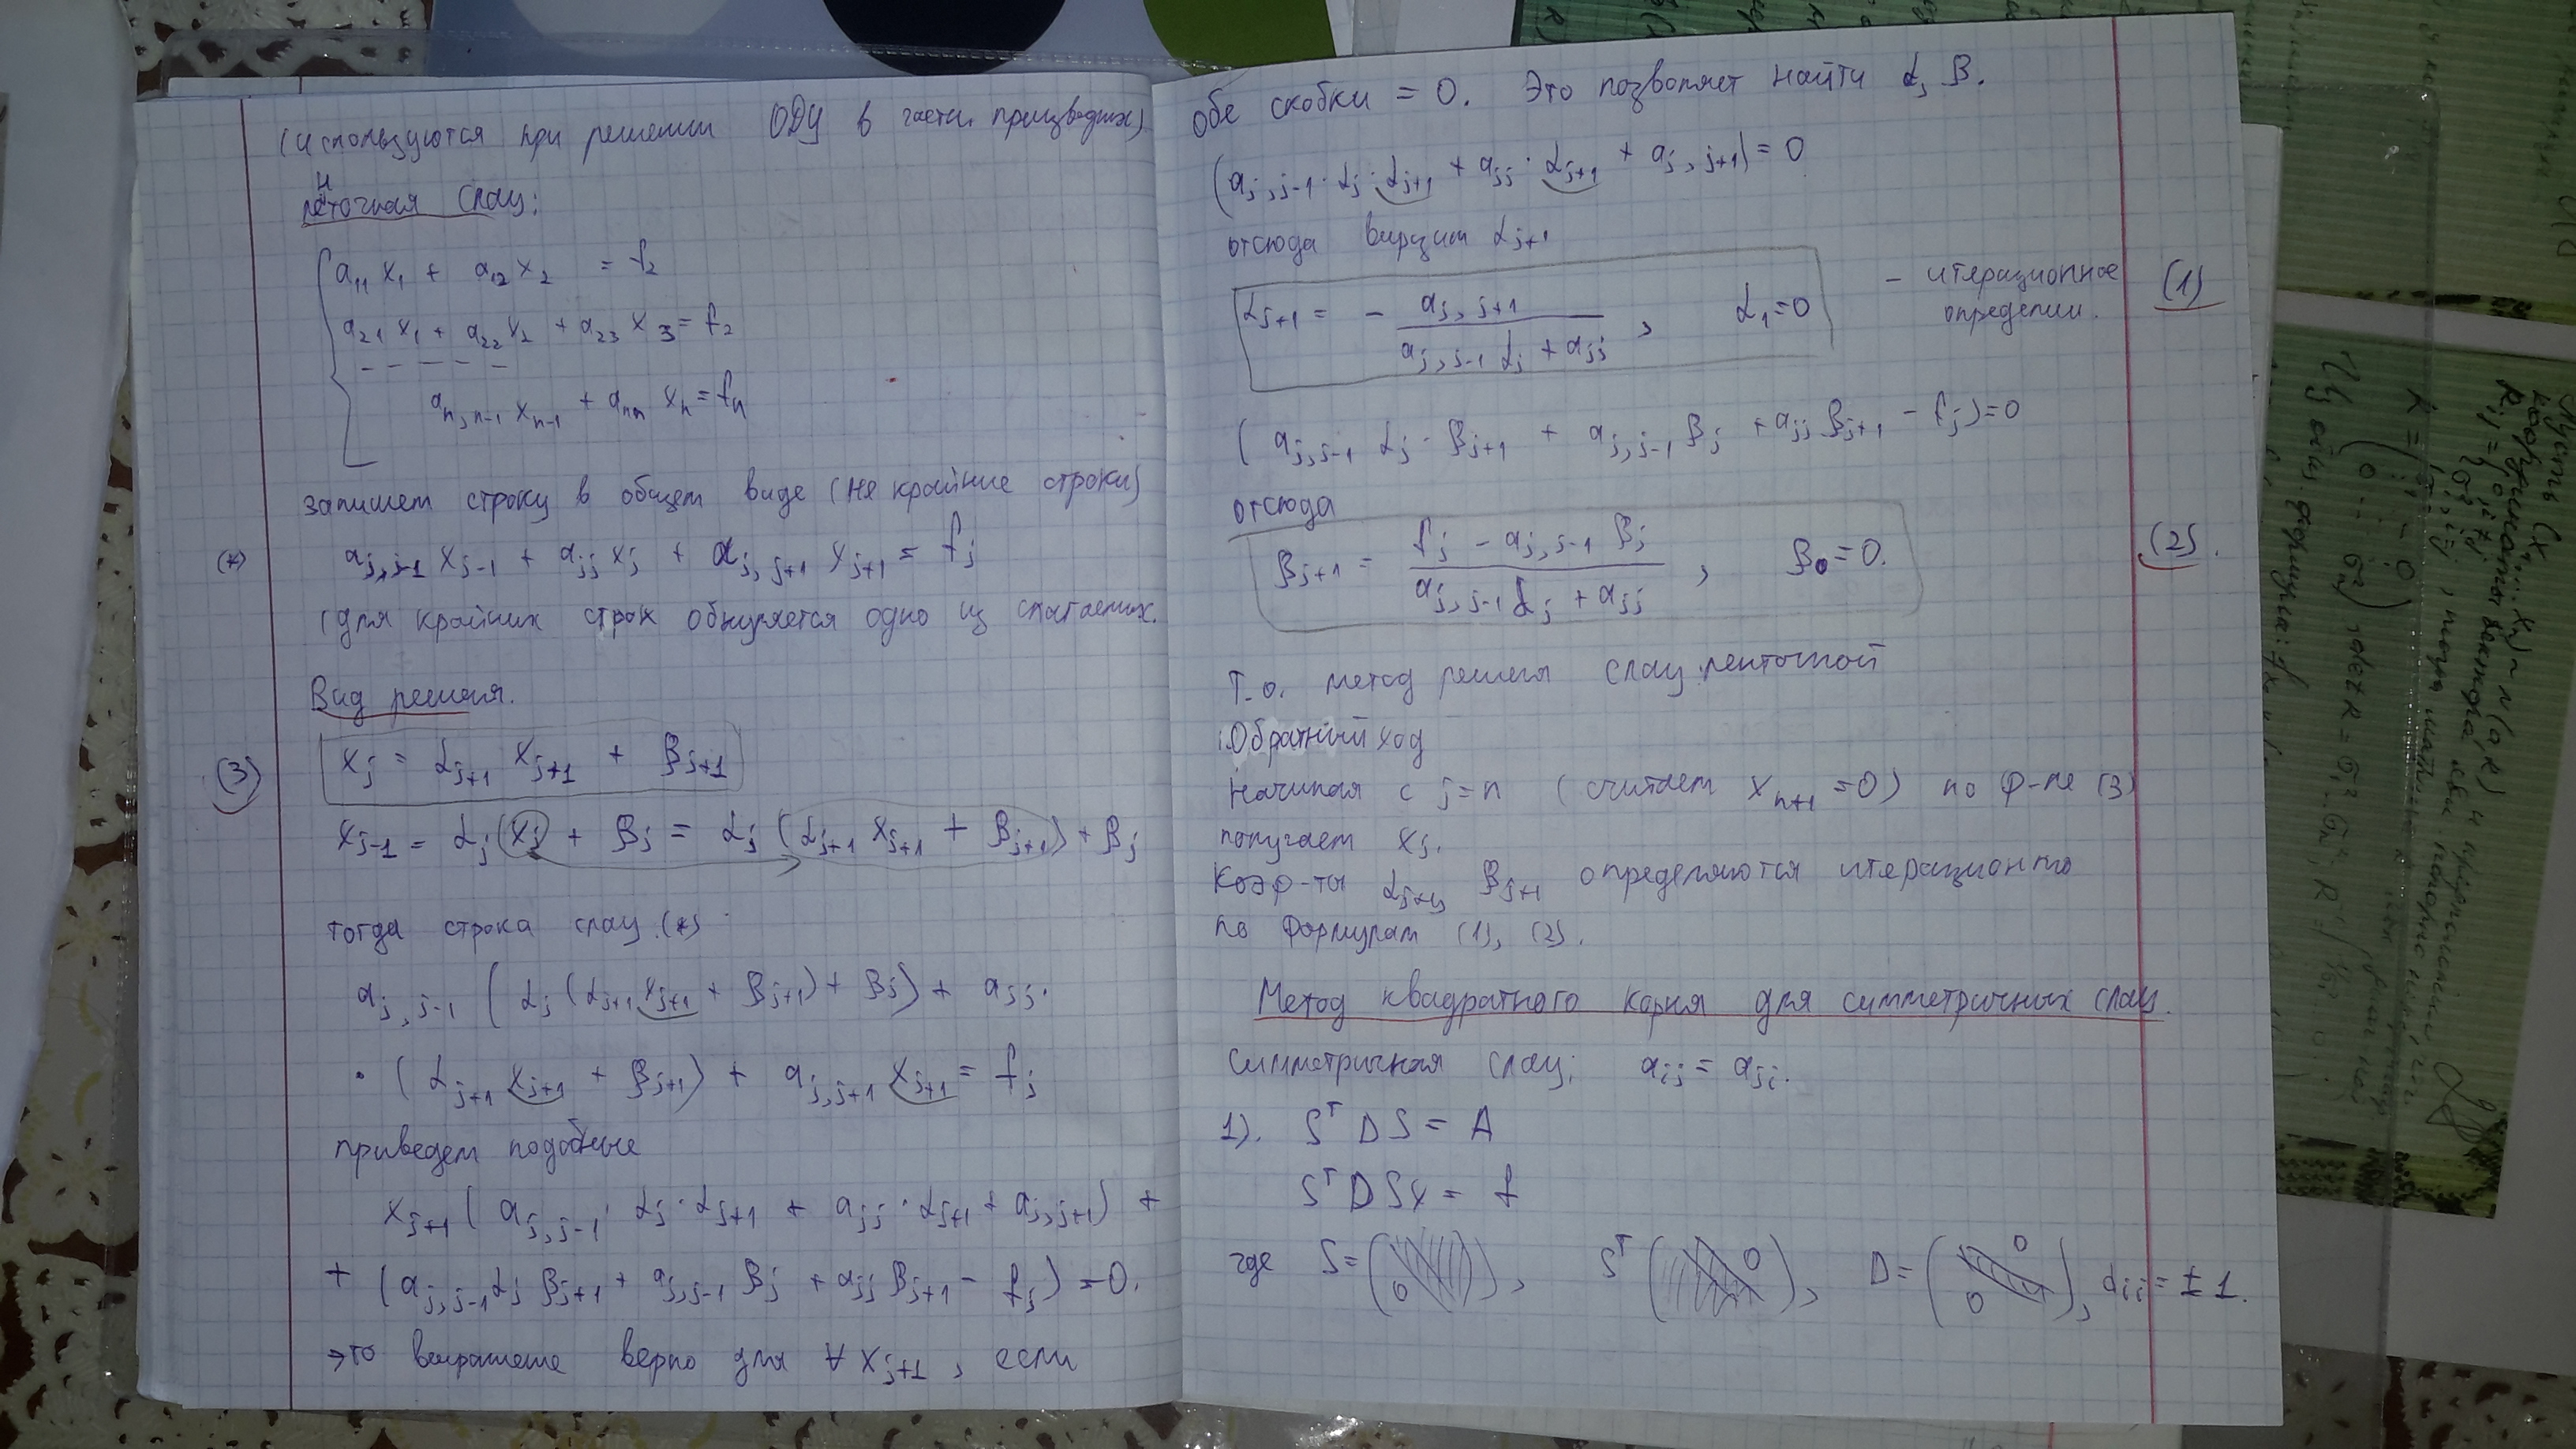 (используются при решении ОДУ в частн. производных)
ленточная Слау:
a₁₁ x₁ + a₁₂ x₂ = f₂
a₂₁ x₁ + a₂₂ x₂ + a₂₃ x₃ = f₂
– – – – –
aₙ,ₙ₋₁ xₙ₋₁ + aₙₙ xₙ = fₙ
запишем строку в общем виде (не крайние строки)
(*) a_{j,j-1} x_{j-1} + a_{jj} x_j + a_{j,j+1} x_{j+1} = f_j
(для крайних строк обнуляется одно из слагаемых.
Вид решения.
(3) x_j = α_{j+1} x_{j+1} + β_{j+1}
x_{j-1} = α_j (x_j) + β_j = α_j (α_{j+1} x_{j+1} + β_{j+1}) + β_j
тогда строка слау (*)
a_{j,j-1} ( α_j (α_{j+1} x_{j+1} + β_{j+1}) + β_j) + a_{jj} ·
· ( α_{j+1} x_{j+1} + β_{j+1}) + a_{j,j+1} x_{j+1} = f_j
приведем подобные
x_{j+1} ( a_{j,j-1} · α_j · α_{j+1} + a_{jj} · α_{j+1} + a_{j,j+1}) +
+ (a_{j,j-1} α_j β_{j+1} + a_{j,j-1} β_j + a_{jj} β_{j+1} - f_j) = 0.
это выражение верно для ∀ x_{j+1}, если
обе скобки = 0. Это позволяет найти α, β.
(a_{j,j-1} · α_j · α_{j+1} + a_{jj} · α_{j+1} + a_{j,j+1}) = 0
отсюда вырзим α_{j+1}
α_{j+1} = - a_{j,j+1} / (a_{j,j-1} α_j + a_{jj}), α₁ = 0 – итерационное определении. (1)
( a_{j,j-1} α_j · β_{j+1} + a_{j,j-1} β_j + a_{jj} β_{j+1} - f_j) = 0
отсюда
β_{j+1} = (f_j - a_{j,j-1} β_j) / (a_{j,j-1} α_j + a_{jj}), β₀ = 0. (2).
Т.о. метод решения слау ленточной
Обратный ход
Начиная с j = n (считаем x_{n+1} = 0) по ф-ле (3)
получаем x_j.
Коэф-ты α_{j+1}, β_{j+1} определяются итерационно
по формулам (1), (2).
Метод квадратного корня для симметричных слау.
Симметричная слау: a_{ij} = a_{ji}.
1). Sᵀ D S = A
Sᵀ D S x = f
где S = ( 0 ), Sᵀ ( 0 ), D = ( 0 0 ), d_{ii} = ± 1.